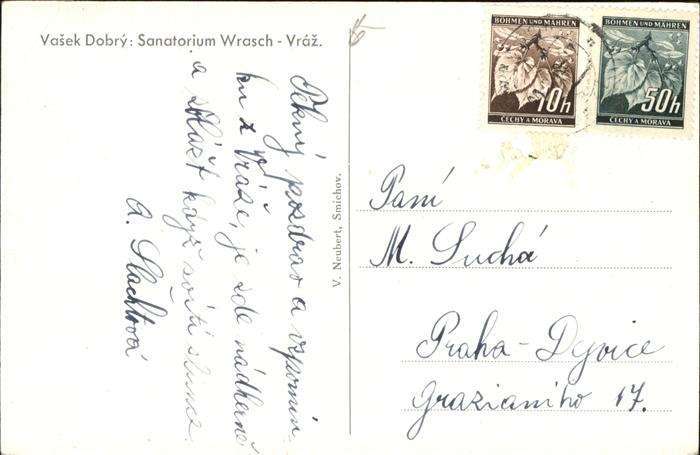 Vašek Dobrý: Sanatorium Wrasch - Vráž.
Pěkný pozdrav a vzpomín
ku z Vráže, je zde nádherně
a zvlášť když svítí slunce.
A. Slachtová
V. Neubert, Smíchov.
BÖHMEN UND MÄHREN
10h
ČECHY A MORAVA
BÖHMEN UND MÄHREN
50h
ČECHY A MORAVA
Paní
M. Suchá
Praha-Dejvice
Grazianiho 17.